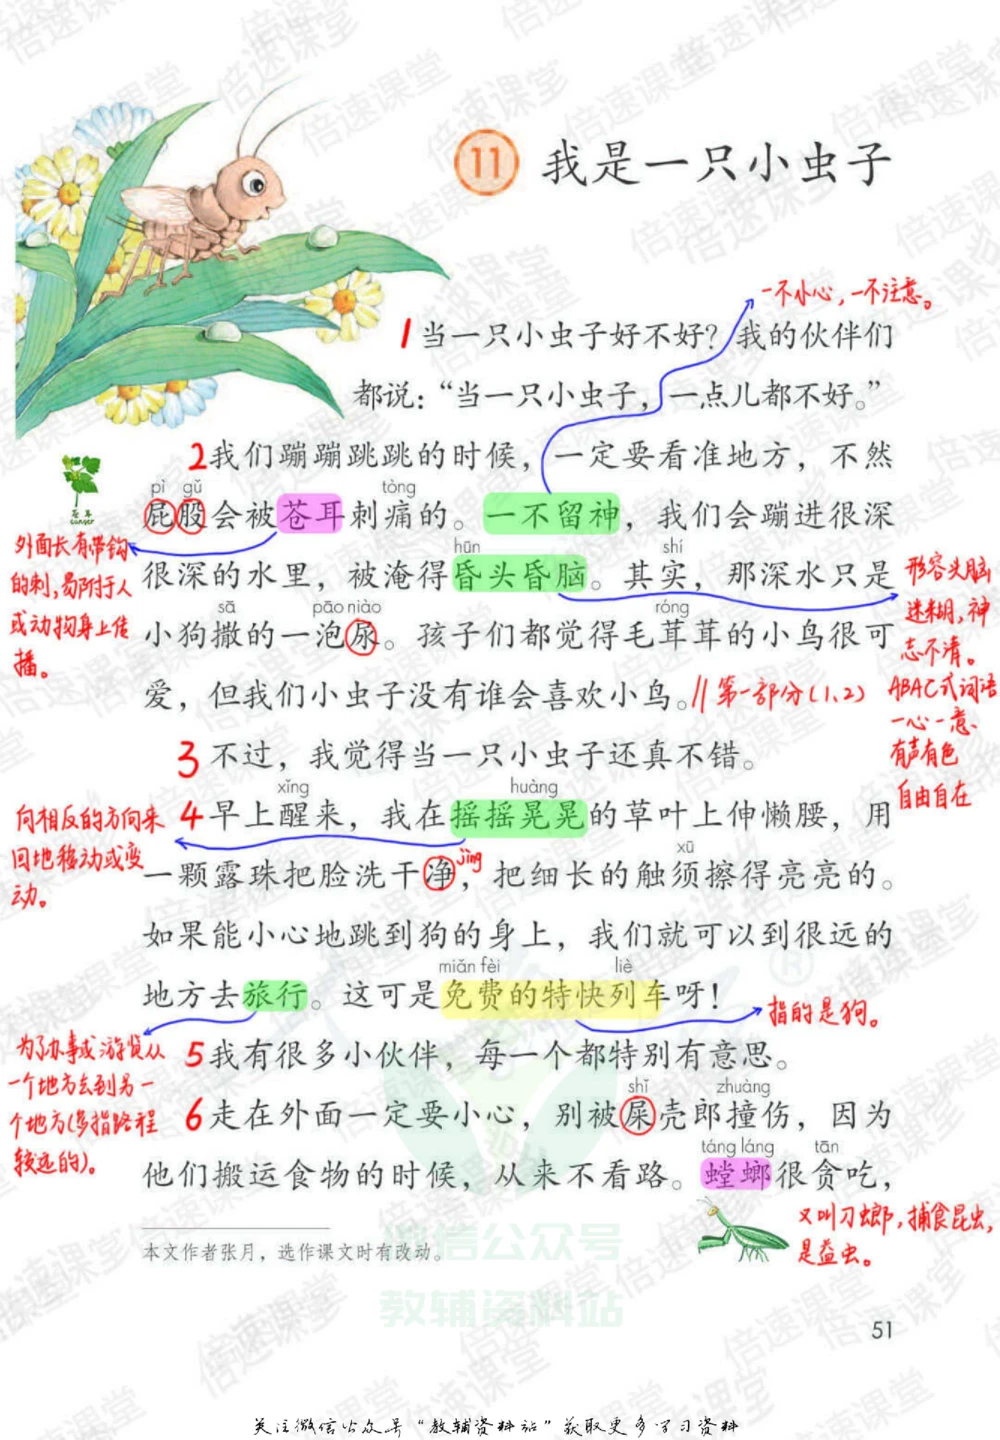 11 我是一只小虫子
一不小心，一不注意。
1当一只小虫子好不好？我的伙伴们
都说：“当一只小虫子，一点儿都不好。”
2我们蹦蹦跳跳的时候，一定要看准地方，不然
pì gǔ tòng
屁股会被苍耳刺痛的。一不留神，我们会蹦进很深
苍耳
外面长有带钩
的刺，易附于人
或动物身上传
播。
hūn shí
很深的水里，被淹得昏头昏脑。其实，那深水只是
形容头脑
迷糊，神
志不清。
ABAC式词语
一心一意、
有声有色
自由自在
sā pāo niào róng
小狗撒的一泡尿。孩子们都觉得毛茸茸的小鸟很可
爱，但我们小虫子没有谁会喜欢小鸟。//第一部分(1、2)
3不过，我觉得当一只小虫子还真不错。
xǐng huàng
4早上醒来，我在摇摇晃晃的草叶上伸懒腰，用
向相反的方向来
回地移动或变
动。
jìng xū
一颗露珠把脸洗干净，把细长的触须擦得亮亮的。
如果能小心地跳到狗的身上，我们就可以到很远的
miǎn fèi liè
地方去旅行。这可是免费的特快列车呀！
指的是狗。
为了办事或游览从
一个地方去到另一
个地方(多指路程
较远的)。
5我有很多小伙伴，每一个都特别有意思。
shǐ zhuàng
6走在外面一定要小心，别被屎壳郎撞伤，因为
táng láng tān
他们搬运食物的时候，从来不看路。螳螂很贪吃，
又叫刀螂，捕食昆虫，
是益虫。
本文作者张月，选作课文时有改动。
微信公众号
教辅资料站
51
关注微信公众号“教辅资料站”获取更多学习资料
倍速课堂